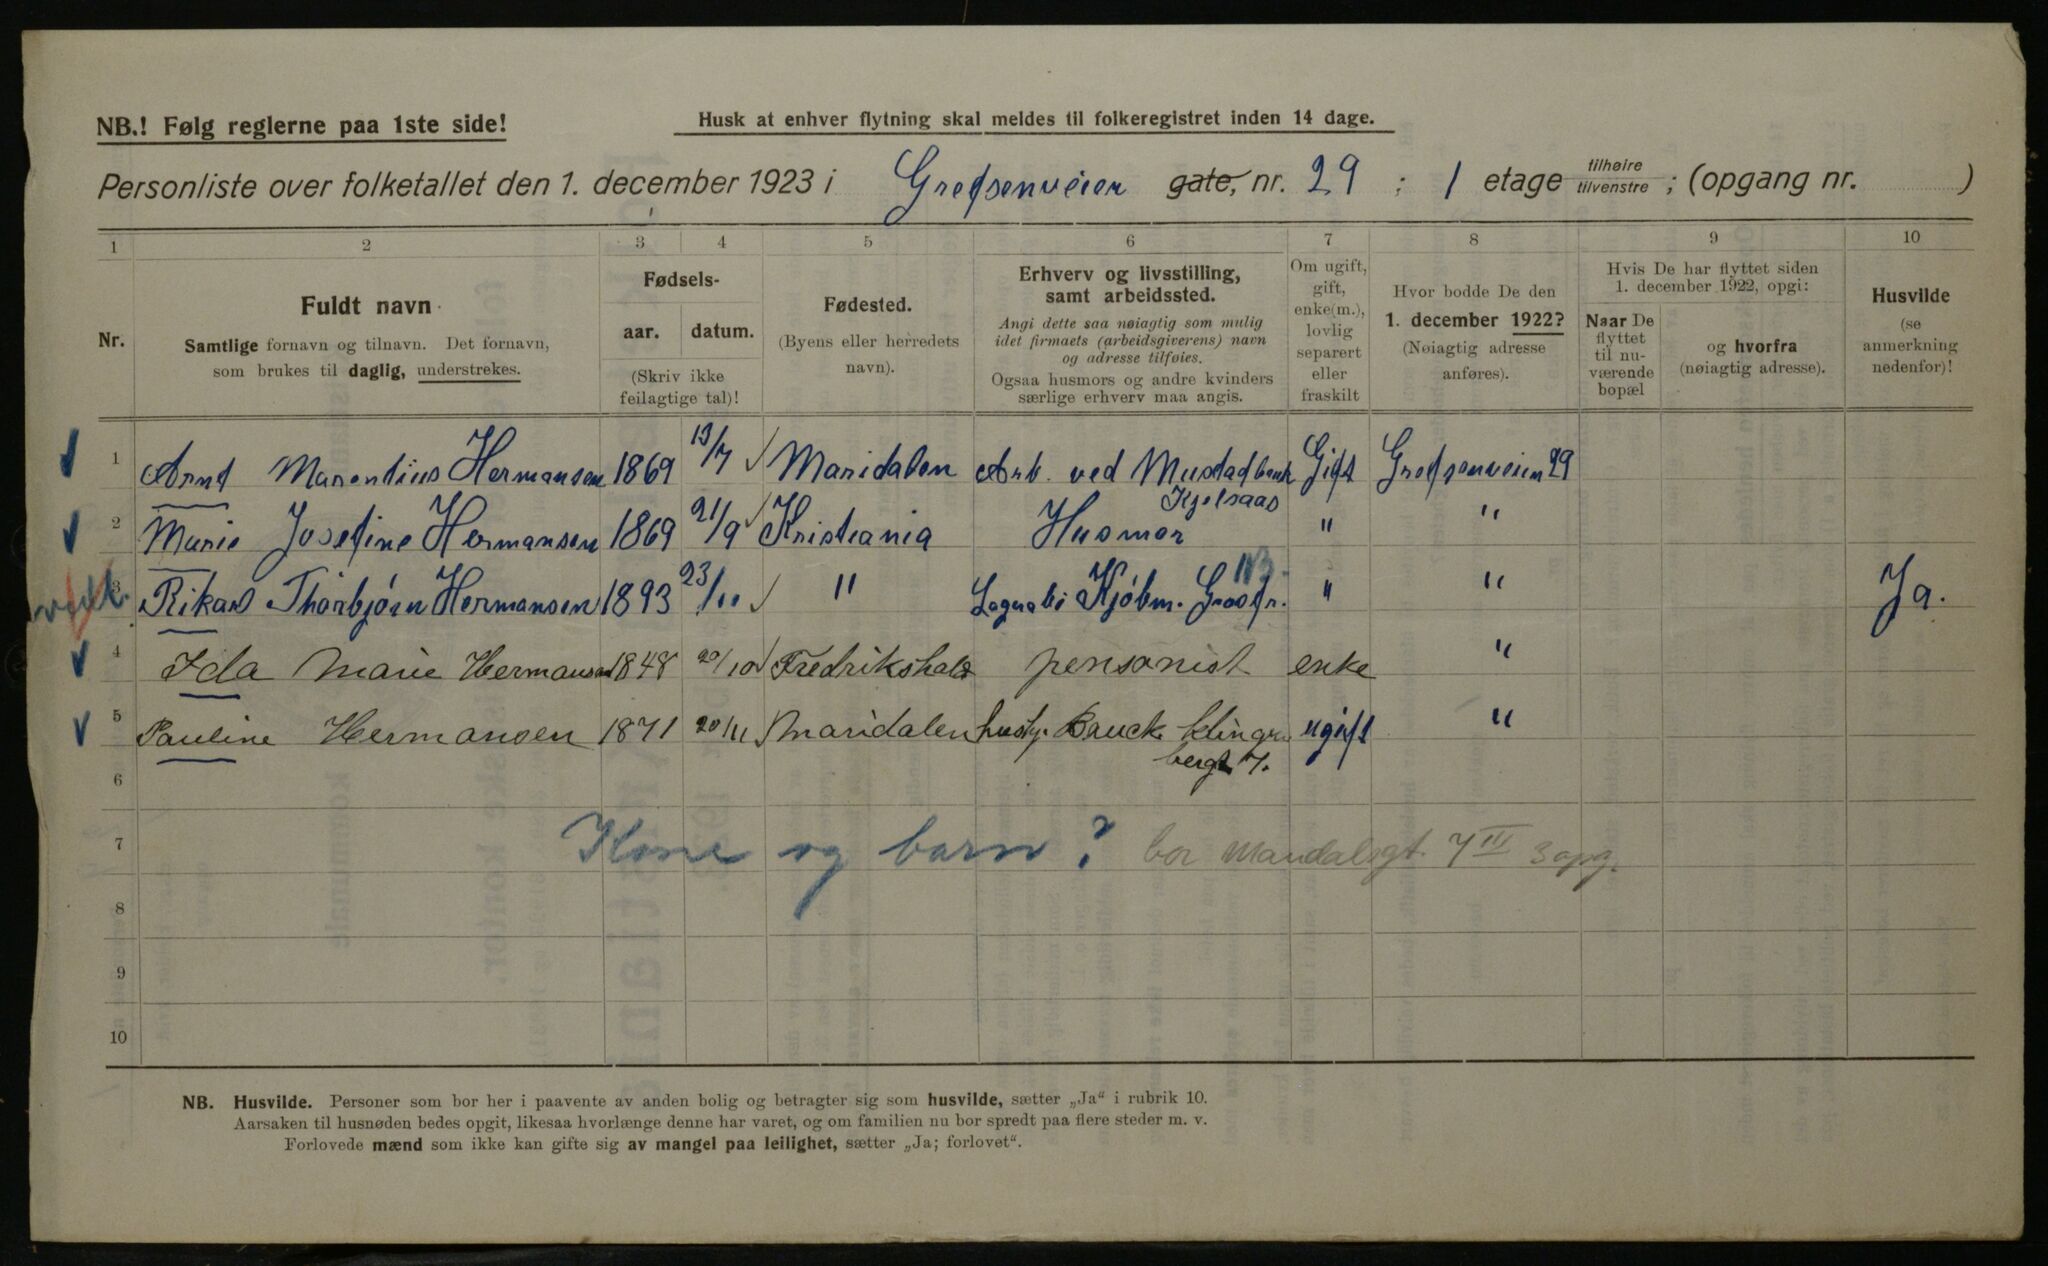 NB.! Følg reglerne paa 1ste side!
Husk at enhver flytning skal meldes til folkeregistret inden 14 dage.
Personliste over folketallet den 1. december 1923 i Grefsenveien gate, nr. 29 ; 1 etage tilhøire tilvenstre ; (opgang nr. )
1 2 3 4 5 6 7 8 9 10
Nr.
Fuldt navn
Samtlige fornavn og tilnavn. Det fornavn,
som brukes til daglig, understrekes.
Fødsels-
aar. datum.
(Skriv ikke
feilagtige tal)!
Fødested.
(Byens eller herredets
navn).
Erhverv og livsstilling,
samt arbeidssted.
Angi dette saa nøiagtig som mulig
idet firmaets (arbeidsgiverens) navn
og adresse tilføies.
Ogsaa husmors og andre kvinders
særlige erhverv maa angis.
Om ugift,
gift,
enke(m.),
lovlig
separert
eller
fraskilt
Hvor bodde De den
1. december 1922?
(Nøiagtig adresse
anføres).
Hvis De har flyttet siden
1. december 1922, opgi:
Naar De
flyttet
til nu-
værende
bopæl
og hvorfra
(nøiagtig adresse).
Husvilde
(se
anmerkning
nedenfor)!
1 Arnt Marentius Hermansen 1869 13/7 Maridalen Arb. ved Mustad Gift Grefsenveien 29
Kjelsaas
2 Marie Josefine Hermansen 1869 21/9 Kristiania Husmor " "
3 Rikard Thorbjørn Hermansen 1893 23/11 " Kjøbm. " " Ja.
4 Ida Marie Hermansen 1848 20/10 Fredrikshald pensonist enke "
5 Pauline Hermansen 1871 20/11 Maridalen Klingen ugift "
bergt 7.
6
7 Kone og barn? bor Mandalsgt. 7 III 3 opg.
8
9
10
NB. Husvilde. Personer som bor her i paavente av anden bolig og betragter sig som husvilde, sætter „Ja" i rubrik 10.
Aarsaken til husnøden bedes opgit, likesaa hvorlænge denne har varet, og om familien nu bor spredt paa flere steder m. v.
Forlovede mænd som ikke kan gifte sig av mangel paa leilighet, sætter „Ja; forlovet".